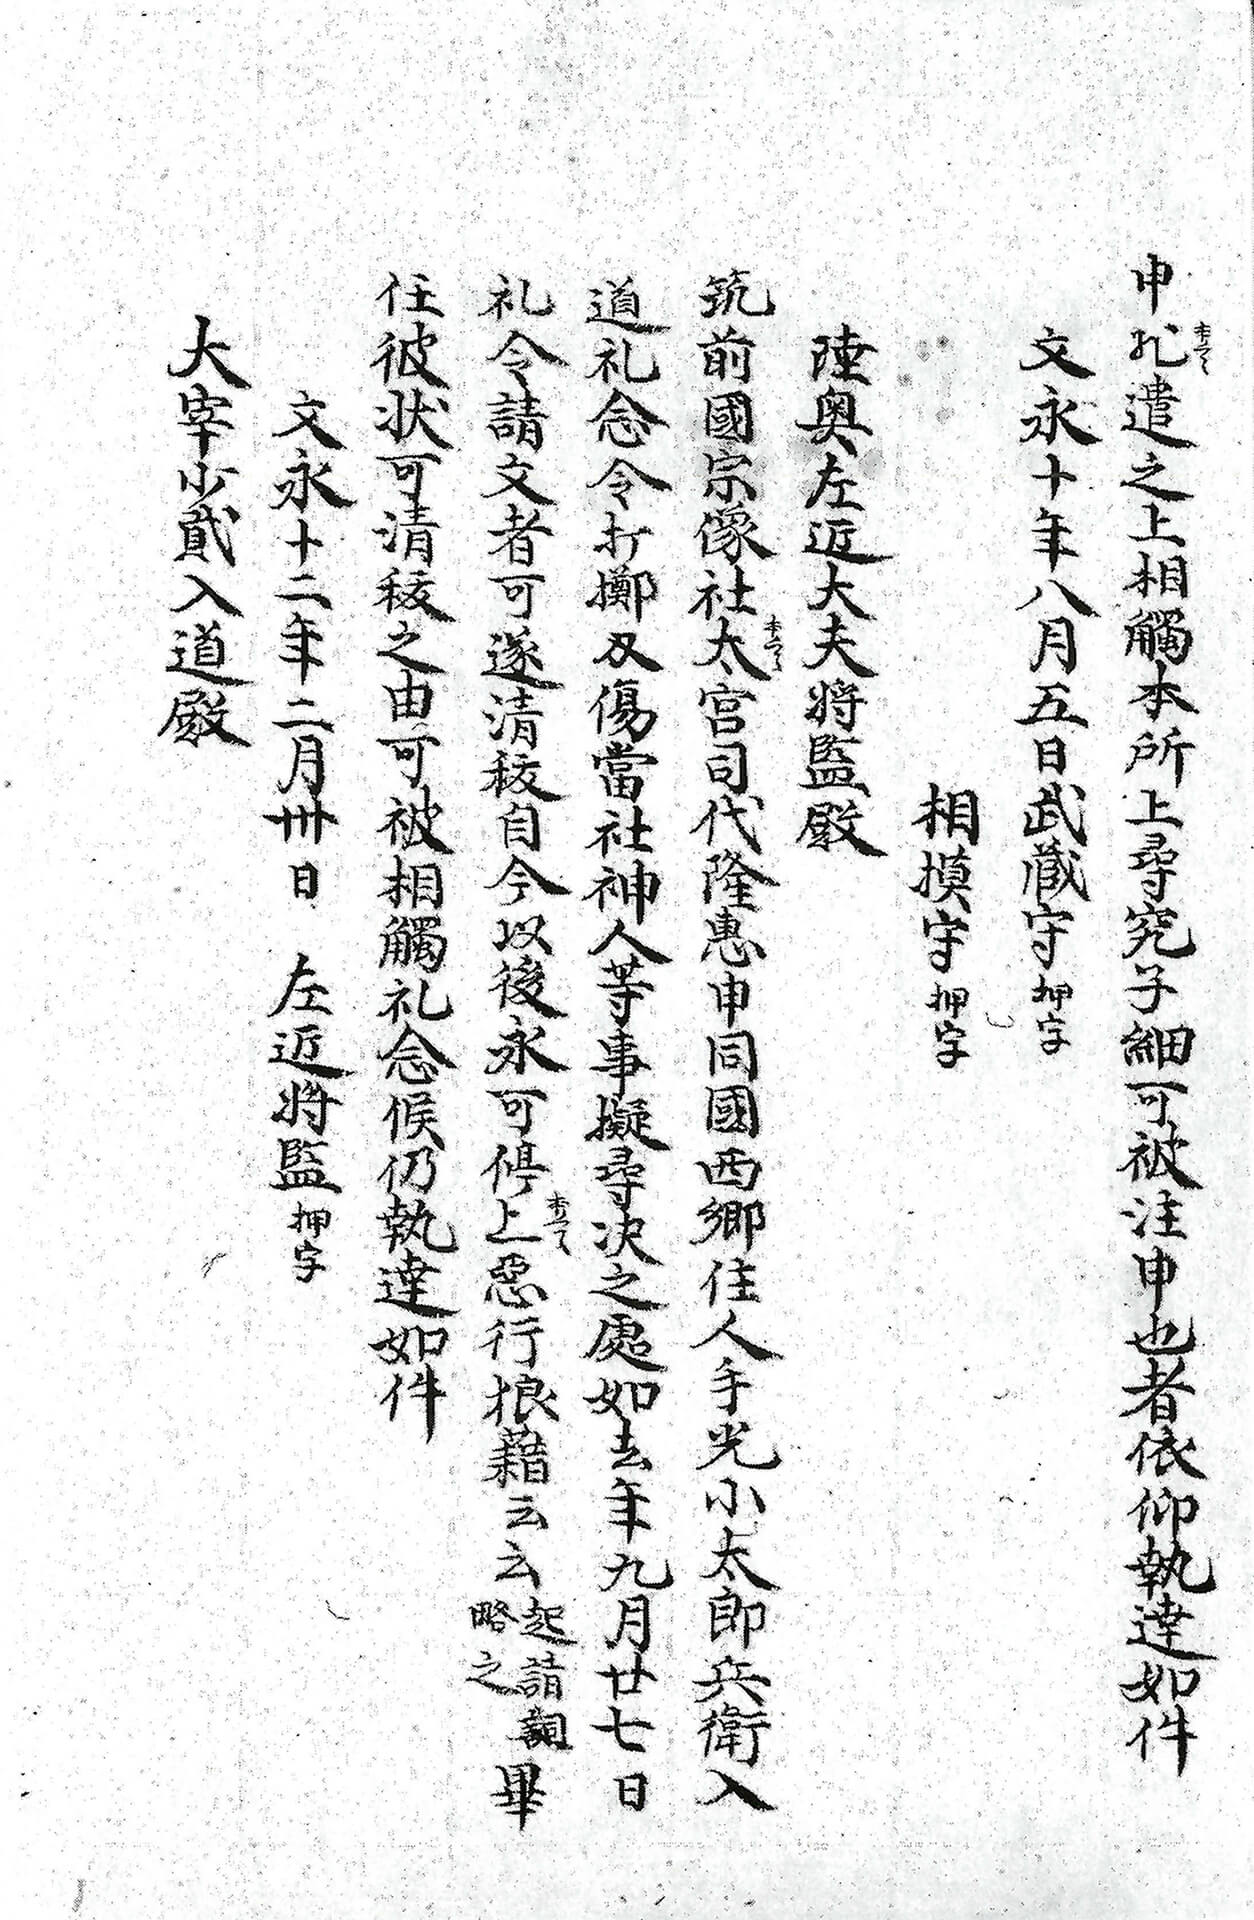 申札遣之上相觸本所上尋究子細可被注申也者依仰執達如件
文永十年八月五日武藏守押字
相摸守押字
陸奥左近大夫将監殿
筑前國宗像社太宮司代隆惠申同國西郷住人手光小太郎兵衛入
道礼念令打擲刃傷當社神人等事擬尋决之處如去年九月廿七日
礼令請文者可遂清稜自今以後永可停上惡行狼藉云云起請詞略之畢
任彼状可清稜之由可被相觸礼念候仍執達如件
文永十二年二月卅日 左近将監押字
大宰少貳入道殿